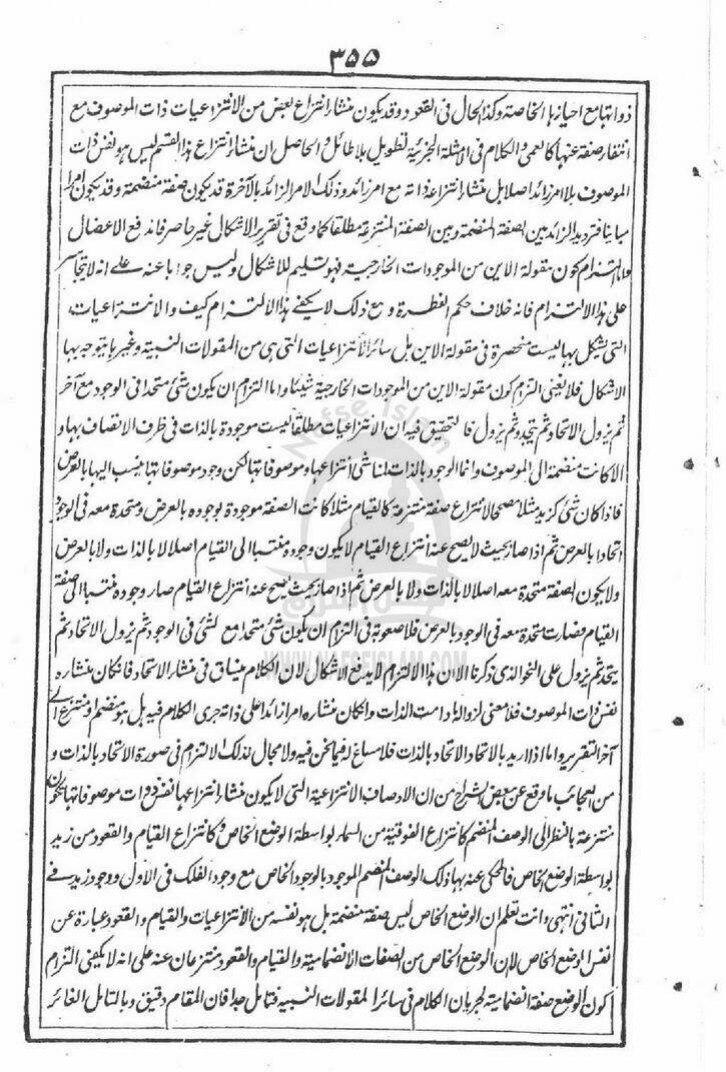 ٣٥٥
ذواتها مع احيازها الخاصة وكذا الحال فى القعود وقد يكون منشأ انتزاع بعض من الانتزاعيات ذات الموصوف مع
انتفاء صفة عنها كالعمى والكلام فى الامثلة الجزئية تطويل بلا طائل والحاصل ان منشأ انتزاع هذا القسم ليس هو نفس ذات
الموصوف بلا امر زائد اصلا بل منشأ انتزاعه ذاته مع امر زائد وذلك الامر الزائد بالآخرة قد يكون صفة منضمة وقد يكون امرا
مباينا فترديد الزائد بين الصفة المنضمة وبين الصفة المنتزعة مطلقا كما وقع فى تقرير الاشكال غير حاصر فاندفع الاعضال
واما التزام كون مقولة الاين من الموجودات الخارجية فهو تسليم للاشكال وليس جوابا عنه على انه لا يتجاسر
على هذا الالتزام فانه خلاف حكم الفطرة ومع ذلك لا يكفى هذا الالتزام كيف والانتزاعيات
التى يشكل بها ليست منحصرة فى مقولة الاين بل سائر الانتزاعيات التى هى من المقولات النسبية وغيرها يتوجه بها
الاشكال فلا يغنى التزام كون مقولة الاين من الموجودات الخارجية شيئا واما التزام ان يكون شئ متحدا فى الوجود مع آخر
ثم يزول الاتحاد ثم يتحد ثم يزول فالتحقيق فيه ان الانتزاعيات مطلقا ليست موجودة بالذات فى ظرف الاتصاف بها و
الا كانت منضمة الى الموصوف وانما الوجود بالذات لمناشى انتزاعها وموصوفاتها لكن وجود موصوفاتها ينسب اليها بالعرض
فاذا كان شئ كزيد مثلا مصححا لانتزاع صفة منتزعة كالقيام مثلا كانت الصفة موجودة بوجوده بالعرض ومتحدة معه فى الوجود
اتحادا بالعرض ثم اذا صار بحيث لا يصح عنه انتزاع القيام لا يكون وجوده منتسبا الى القيام اصلا لا بالذات ولا بالعرض
ولا يكون الصفة متحدة معه اصلا لا بالذات ولا بالعرض ثم اذا صار بحيث يصح عنه انتزاع القيام صار وجوده منتسبا الى صفة
القيام فصارت متحدة معه فى الوجود بالعرض فلا صعوبة فى التزام ان يكون شئ متحدا مع شئ فى الوجود ثم يزول الاتحاد ثم
يتحد ثم يزول على النحو الذى ذكرنا الا ان هذا الالتزام لا يدفع الاشكال لان الكلام ينساق فى منشأ الاتحاد فان كان منشاره
نفس ذات الموصوف فلا معنى لزواله ما دامت الذات وان كان منشاره امرا زائدا على ذاته جرى الكلام فيه بل هو منضم او منتزع الى
آخر التقرير واما اذا اريد بالاتحاد الاتحاد بالذات فلا مساغ له فيما نحن فيه ولا مجال لذلك الالتزام فى صورة الاتحاد بالذات و
من العجائب ما وقع عن بعض الشراح من ان الاوصاف الانتزاعية التى لا يكون منشأ انتزاعها نفس ذوات موصوفاتها تكون
منتزعة بالنظر الى الوصف المنضم كانتزاع الفوقية من السماء بواسطة الوضع الخاص وكانتزاع القيام والقعود من زيد
بواسطة الوضع الخاص فالمحكى عنه بها ذلك الوصف المنضم الموجود بالوجود الخاص مع وجود الفلك فى الاول ووجود زيد فى
الثانى انتهى وانت تعلم ان الوضع الخاص ليس صفة منضمة بل هو نفسه من الانتزاعيات والقيام والقعود عبارة عن
نفس الوضع الخاص لا ان الوضع الخاص من الصفات الانضمامية والقيام والقعود منتزعان عنه على انه لا يكفى التزام
كون الوضع صفة انضمامية لجريان الكلام فى سائر المقولات النسبية فتامل جدا فان المقام دقيق وبالتامل الغائر
Nafse Islam
WWW.NAFSEISLAM.COM